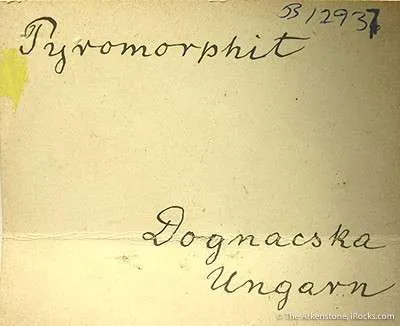 B 12937
Pyromorphit
Dognacska
Ungarn
© The Arkenstone, iRocks.com